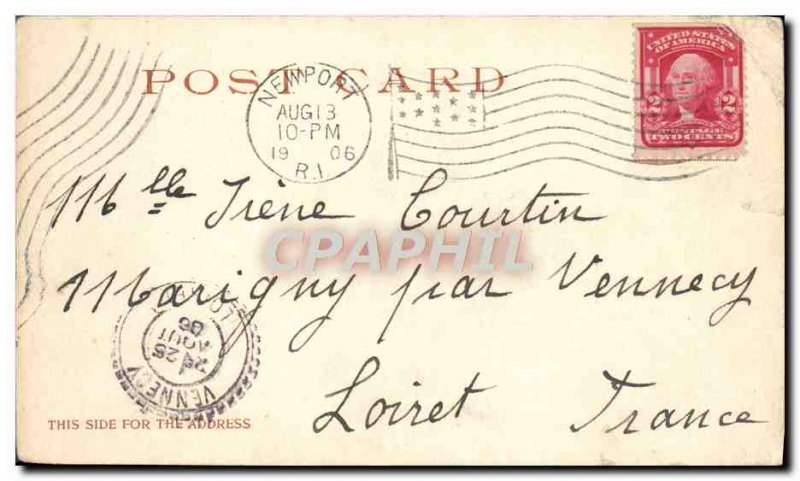 POST CARD
NEWPORT
AUG 13
10-PM
19 06
R.I.
UNITED STATES
OF AMERICA
2 2
POSTAGE
TWO CENTS
Mlle Irène Courtin
CPAPHIL
Marigny par Vennecy
Loiret France
VENNECY
25
AOUT
06
THIS SIDE FOR THE ADDRESS